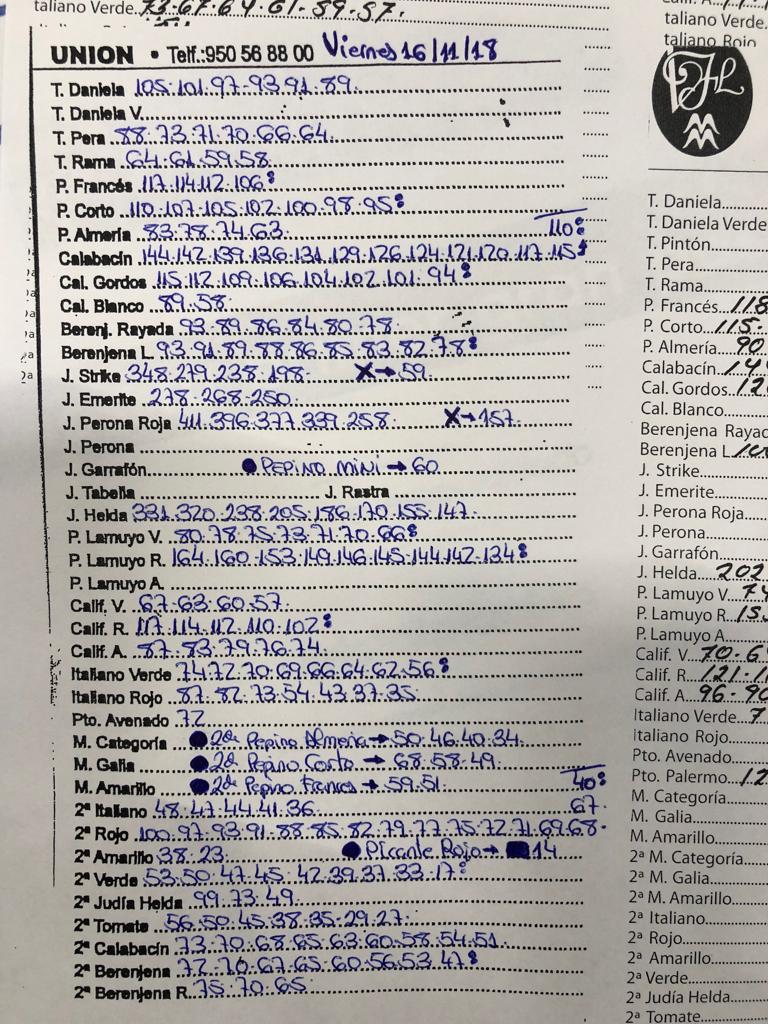 taliano Verde. 73.67.64.61.59.57.
UNION • Telf.:950 56 88 00 Viernes 16/11/18
T. Daniela 105.101.97.93.91.89.
T. Daniela V.
T. Pera 88.73.71.70.66.64.
T. Rama 64.61.59.58.
P. Francés 117.114.112.106:
P. Corto 110.107.105.102.100.98.95:
P. Almería 83.78.74.63. 110:
Calabacín 144.142.139.136.131.129.126.124.121.120.117.115:
Cal. Gordos 115.112.109.106.104.102.101.94:
Cal. Blanco 89.58.
Berenj. Rayada 93.89.86.84.80.78.
Berenjena L. 93.91.89.88.86.85.83.82.78:
J. Strike 348.279.238.198. X→59.
J. Emerite 278.268.250.
J. Perona Roja 411.396.377.339.258. X→157.
J. Perona
J. Garrafón ● PEPINO MINI → 60
J. Tabella J. Rastra
J. Helda 331.320.238.205.186.170.155.147.
P. Lamuyo V. 80.78.75.73.71.70.66:
P. Lamuyo R. 164.160.153.149.146.145.144.142.134:
P. Lamuyo A.
Calif. V. 67.63.60.57.
Calif. R. 117.114.112.110.102:
Calif. A. 87.83.79.76.74.
Italiano Verde 74.72.70.69.66.64.62.56:
Italiano Rojo 87.82.73.54.43.37.35.
Pto. Avenado 72
M. Categoría ● 2ª Pepino Almeria → 50.46.40.34.
M. Galia ● 2ª Pepino Corto → 68.58.49.
M. Amarillo ● 2ª Pepino Frances → 59.51. 40:
2ª Italiano 48.47.44.41.36. 67.
2ª Rojo 100.97.93.91.88.85.82.79.77.75.72.71.69.68.
2ª Amarillo 38.23. ● Picante Rojo → 14
2ª Verde 53.50.47.45.42.39.37.33.17:
2ª Judía Helda 99.73.49.
2ª Tomate 56.50.45.38.35.29.27.
2ª Calabacín 73.70.68.65.63.60.58.54.51.
2ª Berenjena 72.70.67.65.60.56.53.47:
2ª Berenjena R. 75.70.65.
taliano Verde.
taliano Rojo
T. Daniela
T. Daniela Verde
T. Pintón
T. Pera
T. Rama
P. Francés 118
P. Corto 115.
P. Almería 90
Calabacín
Cal. Gordos
Cal. Blanco
Berenjena Rayad
Berenjena L
J. Strike
J. Emerite
J. Perona Roja
J. Perona
J. Garrafón
J. Helda 202
P. Lamuyo V.
P. Lamuyo R.
P. Lamuyo A
Calif. V. 70.6
Calif. R. 121.1
Calif. A. 96-90
Italiano Verde
Italiano Rojo
Pto. Avenado
Pto. Palermo
M. Categoría
M. Galia
M. Amarillo
2ª M. Categoría
2ª M. Galia
2ª M. Amarillo
2ª Italiano
2ª Rojo
2ª Amarillo
2ª Verde
2ª Judía Helda
2ª Tomate